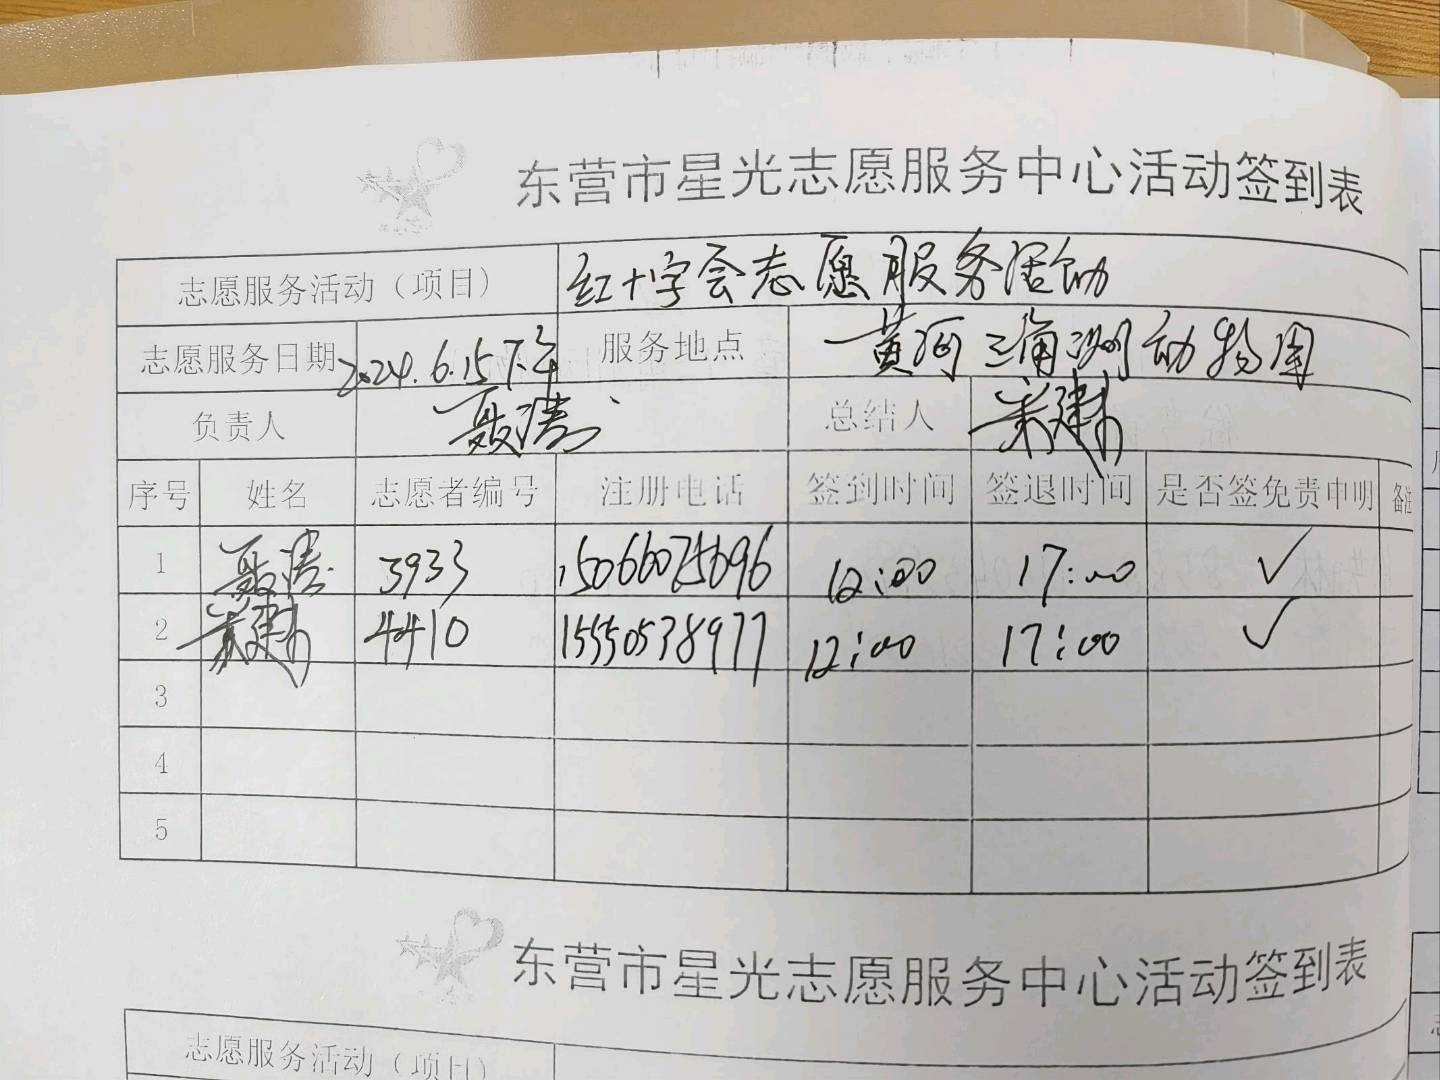 东营市星光志愿服务中心活动签到表
志愿服务活动（项目） 红十字会志愿服务活动
志愿服务日期 2024.6.15下午 服务地点 黄河三角洲动物园
负责人 聂涛 总结人
序号 姓名 志愿者编号 注册电话 签到时间 签退时间 是否签免责申明 备注
1 聂涛 3933 15066075696 12:00 17:00 ✓
2 4410 15550538977 12:00 17:00 ✓
3
4
5
东营市星光志愿服务中心活动签到表
志愿服务活动（项目）